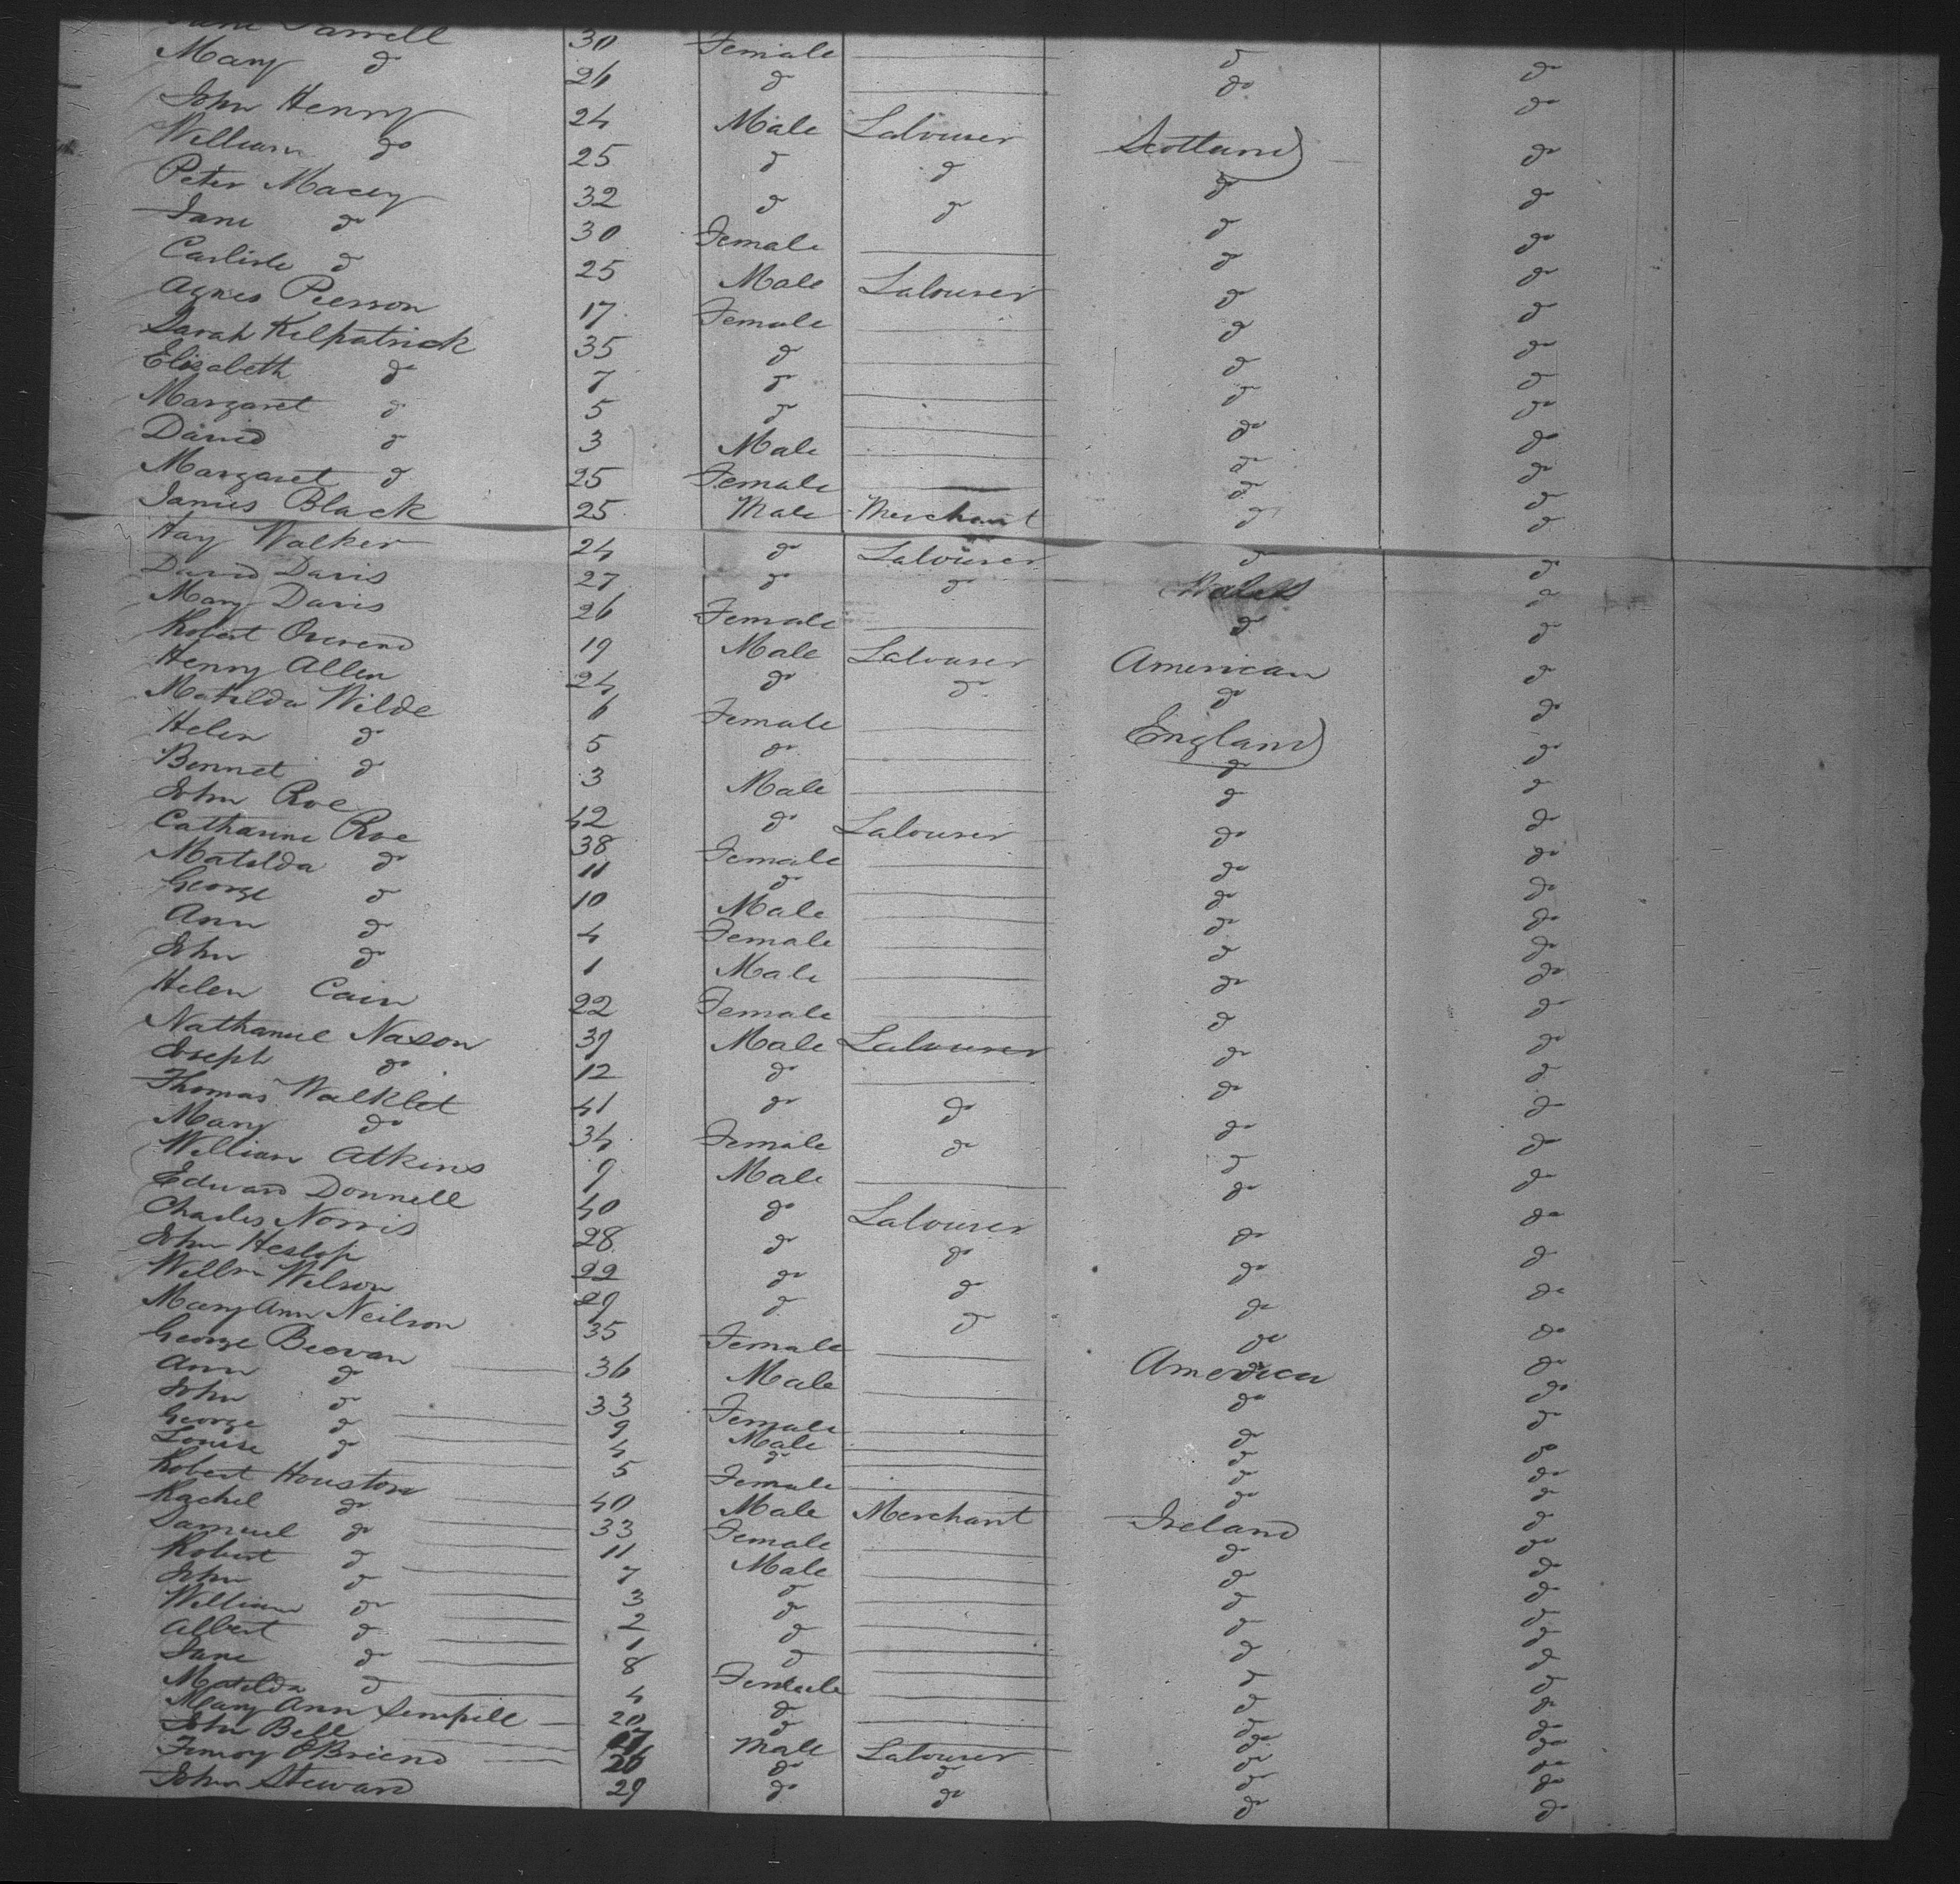 Jane Farrell 30 Female do do
Mary do 26 do do do
John Henry 24 Male Labourer Scotland do
William do 25 do do do do
Peter Macey 32 do do do do
Jane do 30 Female do do
Carlisle do 25 Male Labourer do do
Agnes Peerson 17 Female do do
Sarah Kilpatrick 35 do do do
Elizabeth do 7 do do do
Margaret do 5 do do do
David do 3 Male do do
Margaret do 25 Female do do
James Black 25 Male Merchant do do
Hay Walker 24 do Labourer do do
David Davis 27 do do Wales do
Mary Davis 26 Female do do
Robert Overend 19 Male Labourer American do
Henry Allen 24 do do do do
Matilda Wilde 6 Female England do
Helen do 5 do do do
Bennet do 3 Male do do
John Roe 42 do Labourer do do
Catharine Roe 38 Female do do
Matilda do 11 do do do
George do 10 Male do do
Ann do 4 Female do do
John do 1 Male do do
Helen Cain 22 Female do do
Nathaniel Naxon 39 Male Labourer do do
Joseph do 12 do do do
Thomas Walklet 41 do do do do
Mary do 34 Female do do do
William Atkins 9 Male do do
Edward Donnell 40 do Labourer do do
Charles Norris 28 do do do do
John Heslop 22 do do do do
Willm Wilson 29 do do do do
Mary Ann Neilson 35 Female do do
George Beevan 36 Male America do
Ann do 33 Female do do
John do 9 Male do do
George do 4 do do do
Louise do 5 Female do do
Robert Houston 40 Male Merchant Ireland do
Rachel do 33 Female do do
Samuel do 11 Male do do
Robert do 7 do do do
John do 3 do do do
William do 2 do do do
Albert do 1 do do do
Jane do 8 Female do do
Matilda do 4 do do do
Mary Ann Sempill 20 do do do
John Bell Male Labourer do do
OBriend 26 do do do do
John Steward 29 do do do do